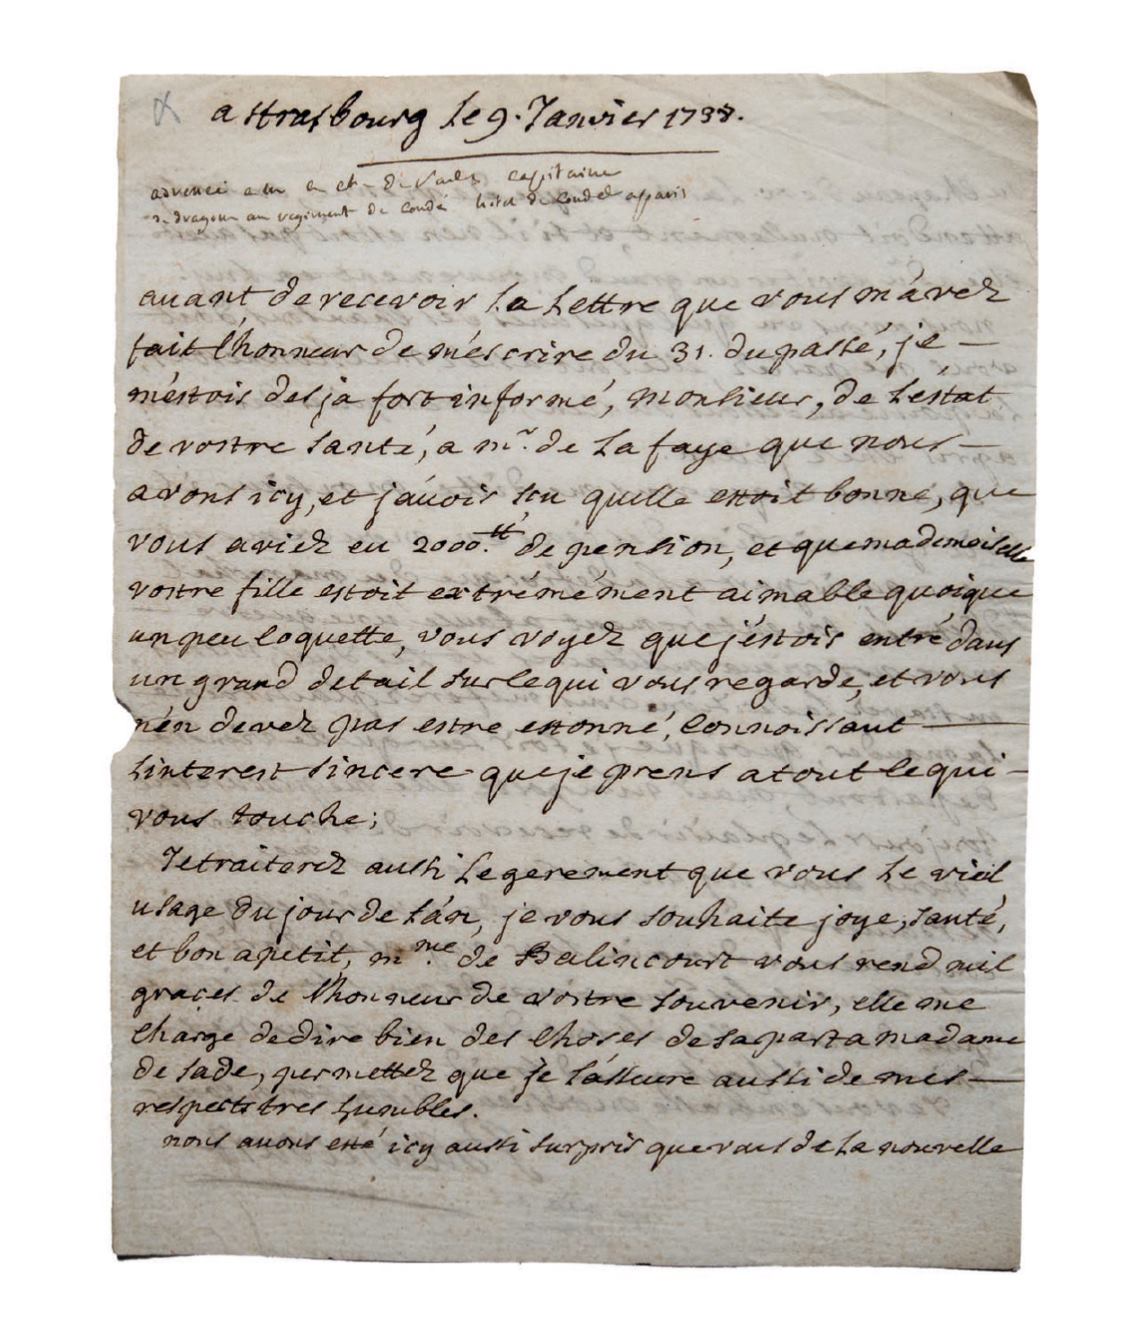 a strasbourg le 9. Janvier 1738.
adressée a m le ch. de Sade capitaine
de dragon au regiment de condé hotel de Condé a paris
auant de recevoir la Lettre que vous m'avez
fait l'honneur de m'escrire du 31. du passé, je
m'estois desja fort informé, monsieur, de L'éstat
de vostre santé, a mr. de La faye que nous
avons icy, et j'auois sçu quelle estoit bonne, que
vous aviez eu 2000.tt de pension, et que mademoiselle
vostre fille estoit extrémément aimable quoique
un peu Coquette, vous voyez que j'éstois entré dans
un grand detail sur ce qui vous regarde, et vous
n'en devez pas estre estonné, Connoissant
L'interest sincere que je prens a tout ce qui
vous touche;
Je traiterez aussi Legerement que vous Le vieil
usage du jour de L'an, je vous souhaite joye, santé,
et bon apetit, mme. de Balincourt vous rend mil
graces de l'honneur de vostre souvenir, elle me
Charge de dire bien des Choses de sa part a madame
de sade, permettez que Je L'asseure aussi de mes
respects tres humbles.
nous auons esté icy aussi surpris que vous de La nouvelle